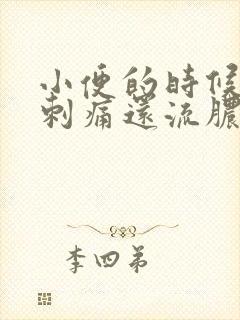 小便的時候
刺痛還流膿
李四弟